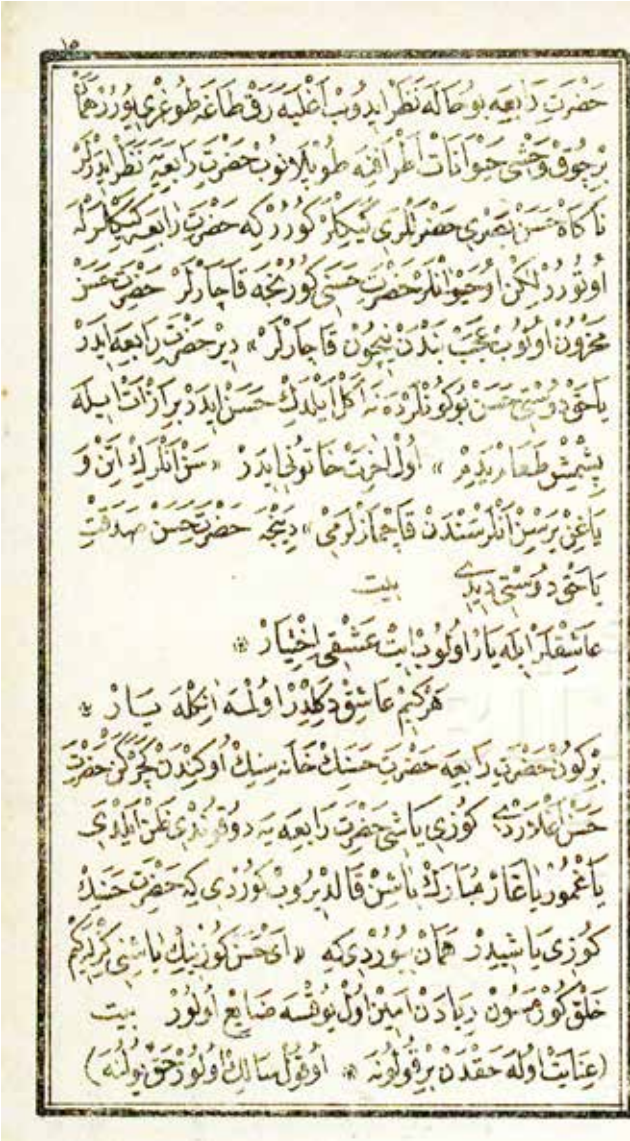 ١٥
حضرت رابعه بو حاله نظر ايدوب اغليه رق طاغه طوغرى يورر همان
بر چوق وحشى حيوانات اطرافنه طوپلانوب حضرت رابعه يه نظر ايدرلر
ناكاه حسن بصرى حضرتلرى كييكلر كورر كه حضرت رابعه كييكلرله
اوتورر لكن او حيوانلر حضرت حسنى كورنجه قاچارلر حضرت حسن
محزون اولوب عجب بندن نيچون قاچارلر» دير حضرت رابعه ايدر
ياحق دوستى حسن بوكونلرده نه اكل ايلدك حسن ايدر بر از ات ايله
پشمش طعام يدم» اول اخرت خاتونى ايدر «سن انلرك اتن و
ياغن يرسن انلر سندن قاچمازلرمى» دينجه حضرت حسن صدقت
ياحق دوستى ديدى بيت
عاشقلر ايله يار اولوب ايت عشقى اختيار
هركيم عاشق دكلدر اولمه انكله يار
بركون حضرت رابعه حضرت حسنك خانه سنك اوكندن كچركن حضرت
حسن اغلاردى كوزى ياشى حضرت رابعه يه دوقوندى ظن ايلدى
ياغمور ياغار مبارك باشن قالديروب كوردى كه حضرت حسنك
كوزى ياشيدر همان بيوردى كه «اى حسن كوزينك ياشنى كيزله كيم
خلق كورمسون ريادن امين اول يوقسه ضايع اولور بيت
(عنايت اوله حقدن بر قولونه اوقول سالك اولور حق يولنه)